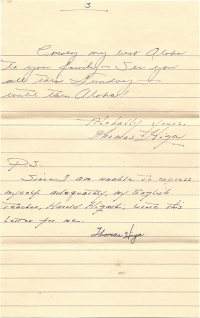 3
Convey my best Aloha
to your family - See you
all this Sunday -
until then Aloha!
Thomas Higa
P.S.
Since I am unable to express
myself adequately, my English
teacher, Harold Higashi, wrote this
letter for me.
Thomas Higa